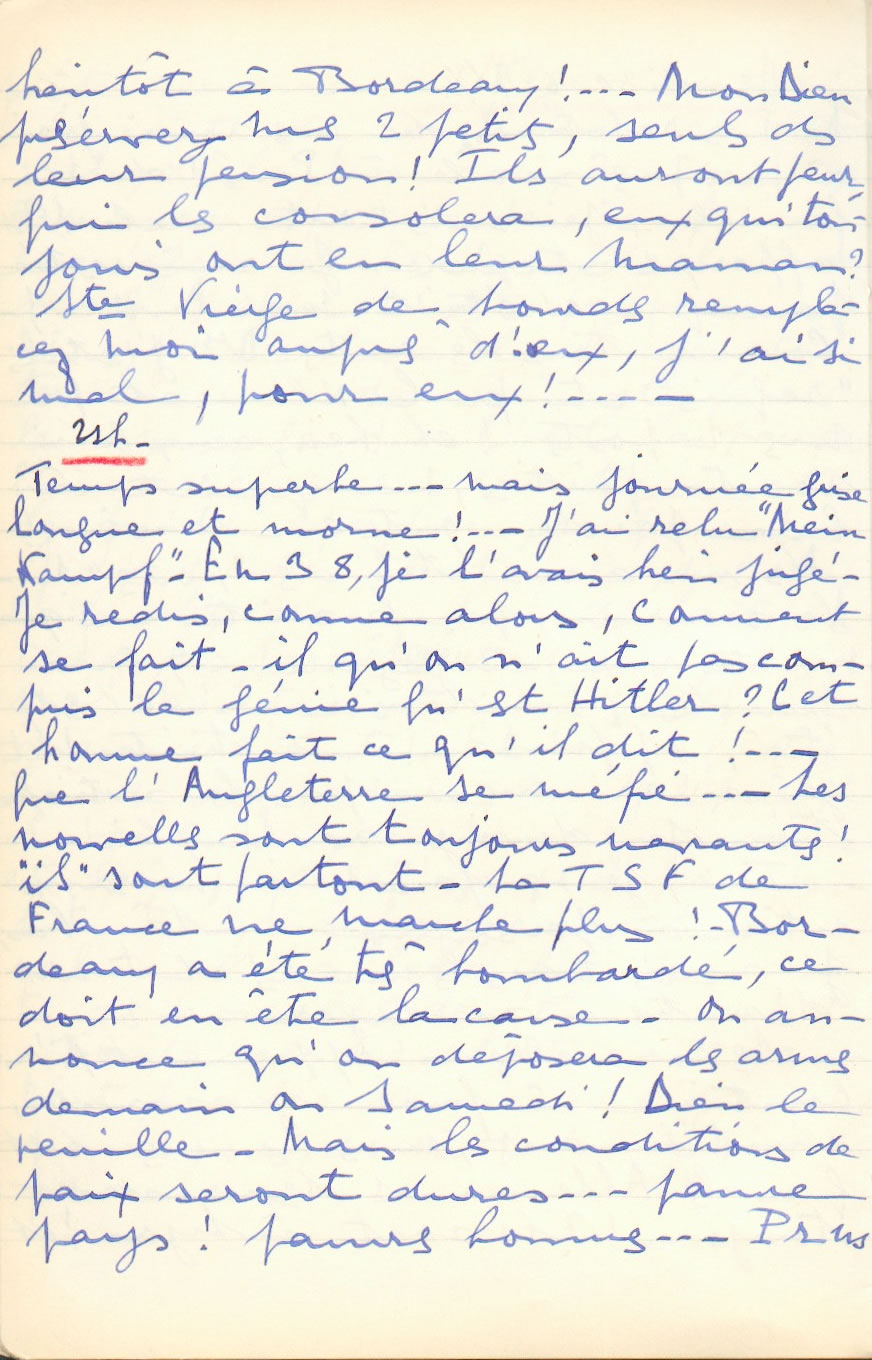 bientôt à Bordeaux !... Mon Dieu
préservez mes 2 petits, seuls ds
leur pension ! Ils auront peur
qui les consolera, eux qui tou-
jours ont eu leur maman ?
Ste Vierge de Lourdes rempla-
cez moi auprès d'eux, j'ai si
mal, pour eux !----
21h-
Temps superbe --- mais journée grise
longue et morne !--- J'ai relu "Mein
Kampf"- En 38, je l'avais bien jugé-
Je redis, comme alors, Comment
se fait-il qu'on n'ait pas com-
pris le génie qu'est Hitler ? Cet
homme fait ce qu'il dit !---
que l'Angleterre se méfie --- Les
nouvelles sont toujours navrantes !
"ils" sont partout - La TSF de
France ne marche plus !- Bor-
deaux a été très bombardé, ce
doit en être la cause - On an-
nonce qu'on déposera les armes
demain ou Samedi ! Dieu le
veuille - Mais les conditions de
paix seront dures --- pauvre
pays ! pauvres hommes --- Pr ns